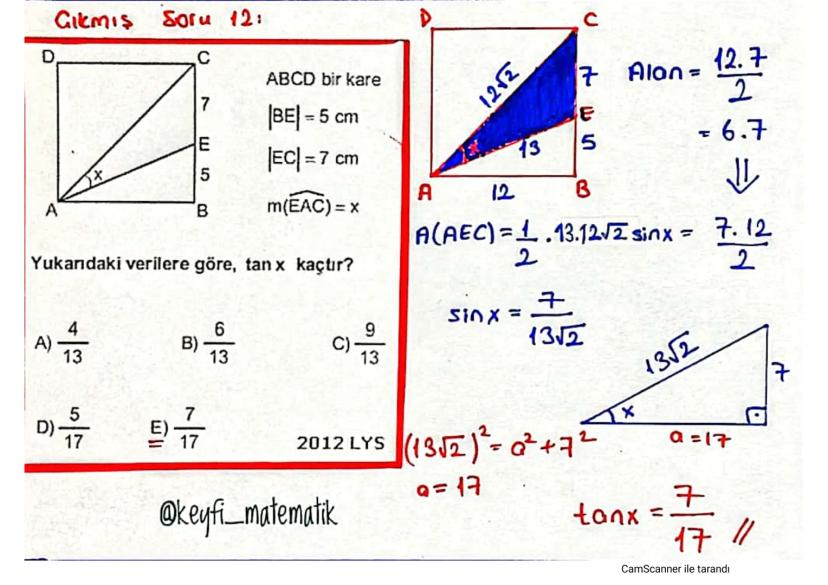 Çıkmış Soru 12:
D
C
7
E
x
5
A
B
ABCD bir kare
|BE| = 5 cm
|EC| = 7 cm
m(EAC) = x
Yukarıdaki verilere göre, tan x kaçtır?
A) 4/13 B) 6/13 C) 9/13
D) 5/17 E) 7/17 2012 LYS
@keyfi_matematik
D
C
12√2
7
E
x
13
5
A
12
B
Alan = 12.7/2
= 6.7
⇓
A(AEC) = 1/2 . 13.12√2 sinx = 7.12/2
sinx = 7/13√2
13√2
7
x
a = 17
(13√2)² = a² + 7²
a = 17
tanx = 7/17 //
CamScanner ile tarandı